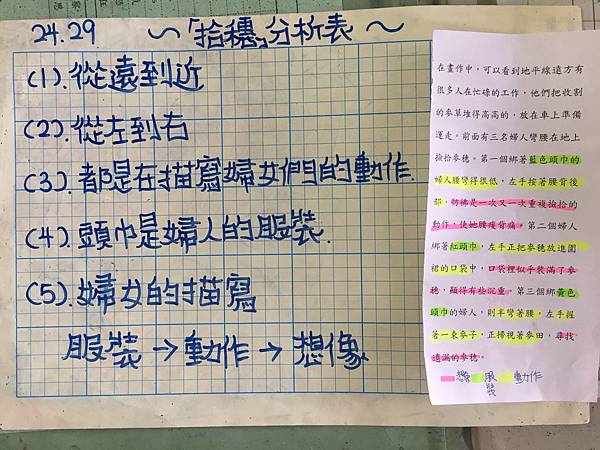 24.29 ～「拾穗」分析表～
(1).從遠到近
(2).從左到右
(3).都是在描寫婦女們的動作.
(4).頭巾是婦人的服裝.
(5).婦女的描寫
服裝→動作→想像
在畫作中，可以看到地平線遠方有
很多人在忙碌的工作，他們把收割
的麥草堆得高高的，放在車上準備
運走。前面有三名婦人彎腰在地上
撿拾麥穗。第一個綁著藍色頭巾的
婦人腰彎得很低，左手按著腰背後
部，彷彿是一次又一次重複撿拾的
動作，使她腰痠背痛。第二個婦人
綁著紅頭巾，左手正把麥穗放進圍
裙的口袋中，口袋裡似乎裝滿了麥
穗，顯得有些沉重。第三個綁黃色
頭巾的婦人，則半彎著腰，左手握
著一束麥子，正掃視著麥田，尋找
遺漏的麥穗。
想像 服裝 動作